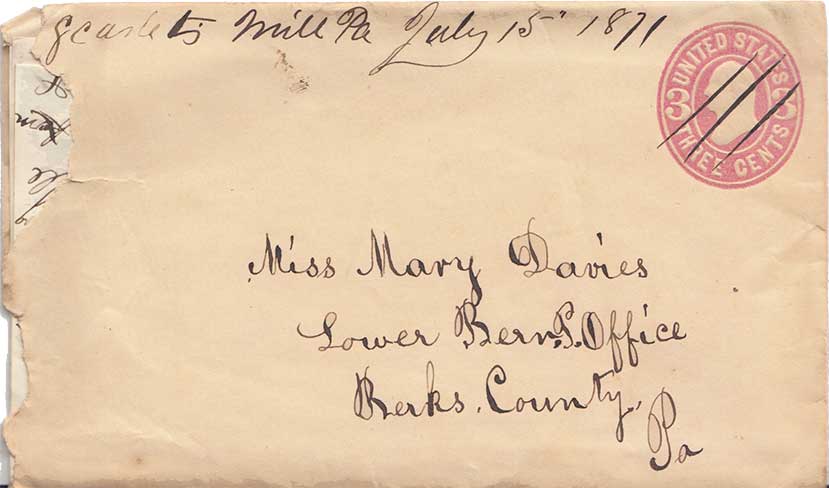 Scarlets Mill Pa July 15" 1871
UNITED STATES
3 3
THREE CENTS
Miss Mary Davies
Lower Bern P. Office
Berks. County,
Pa